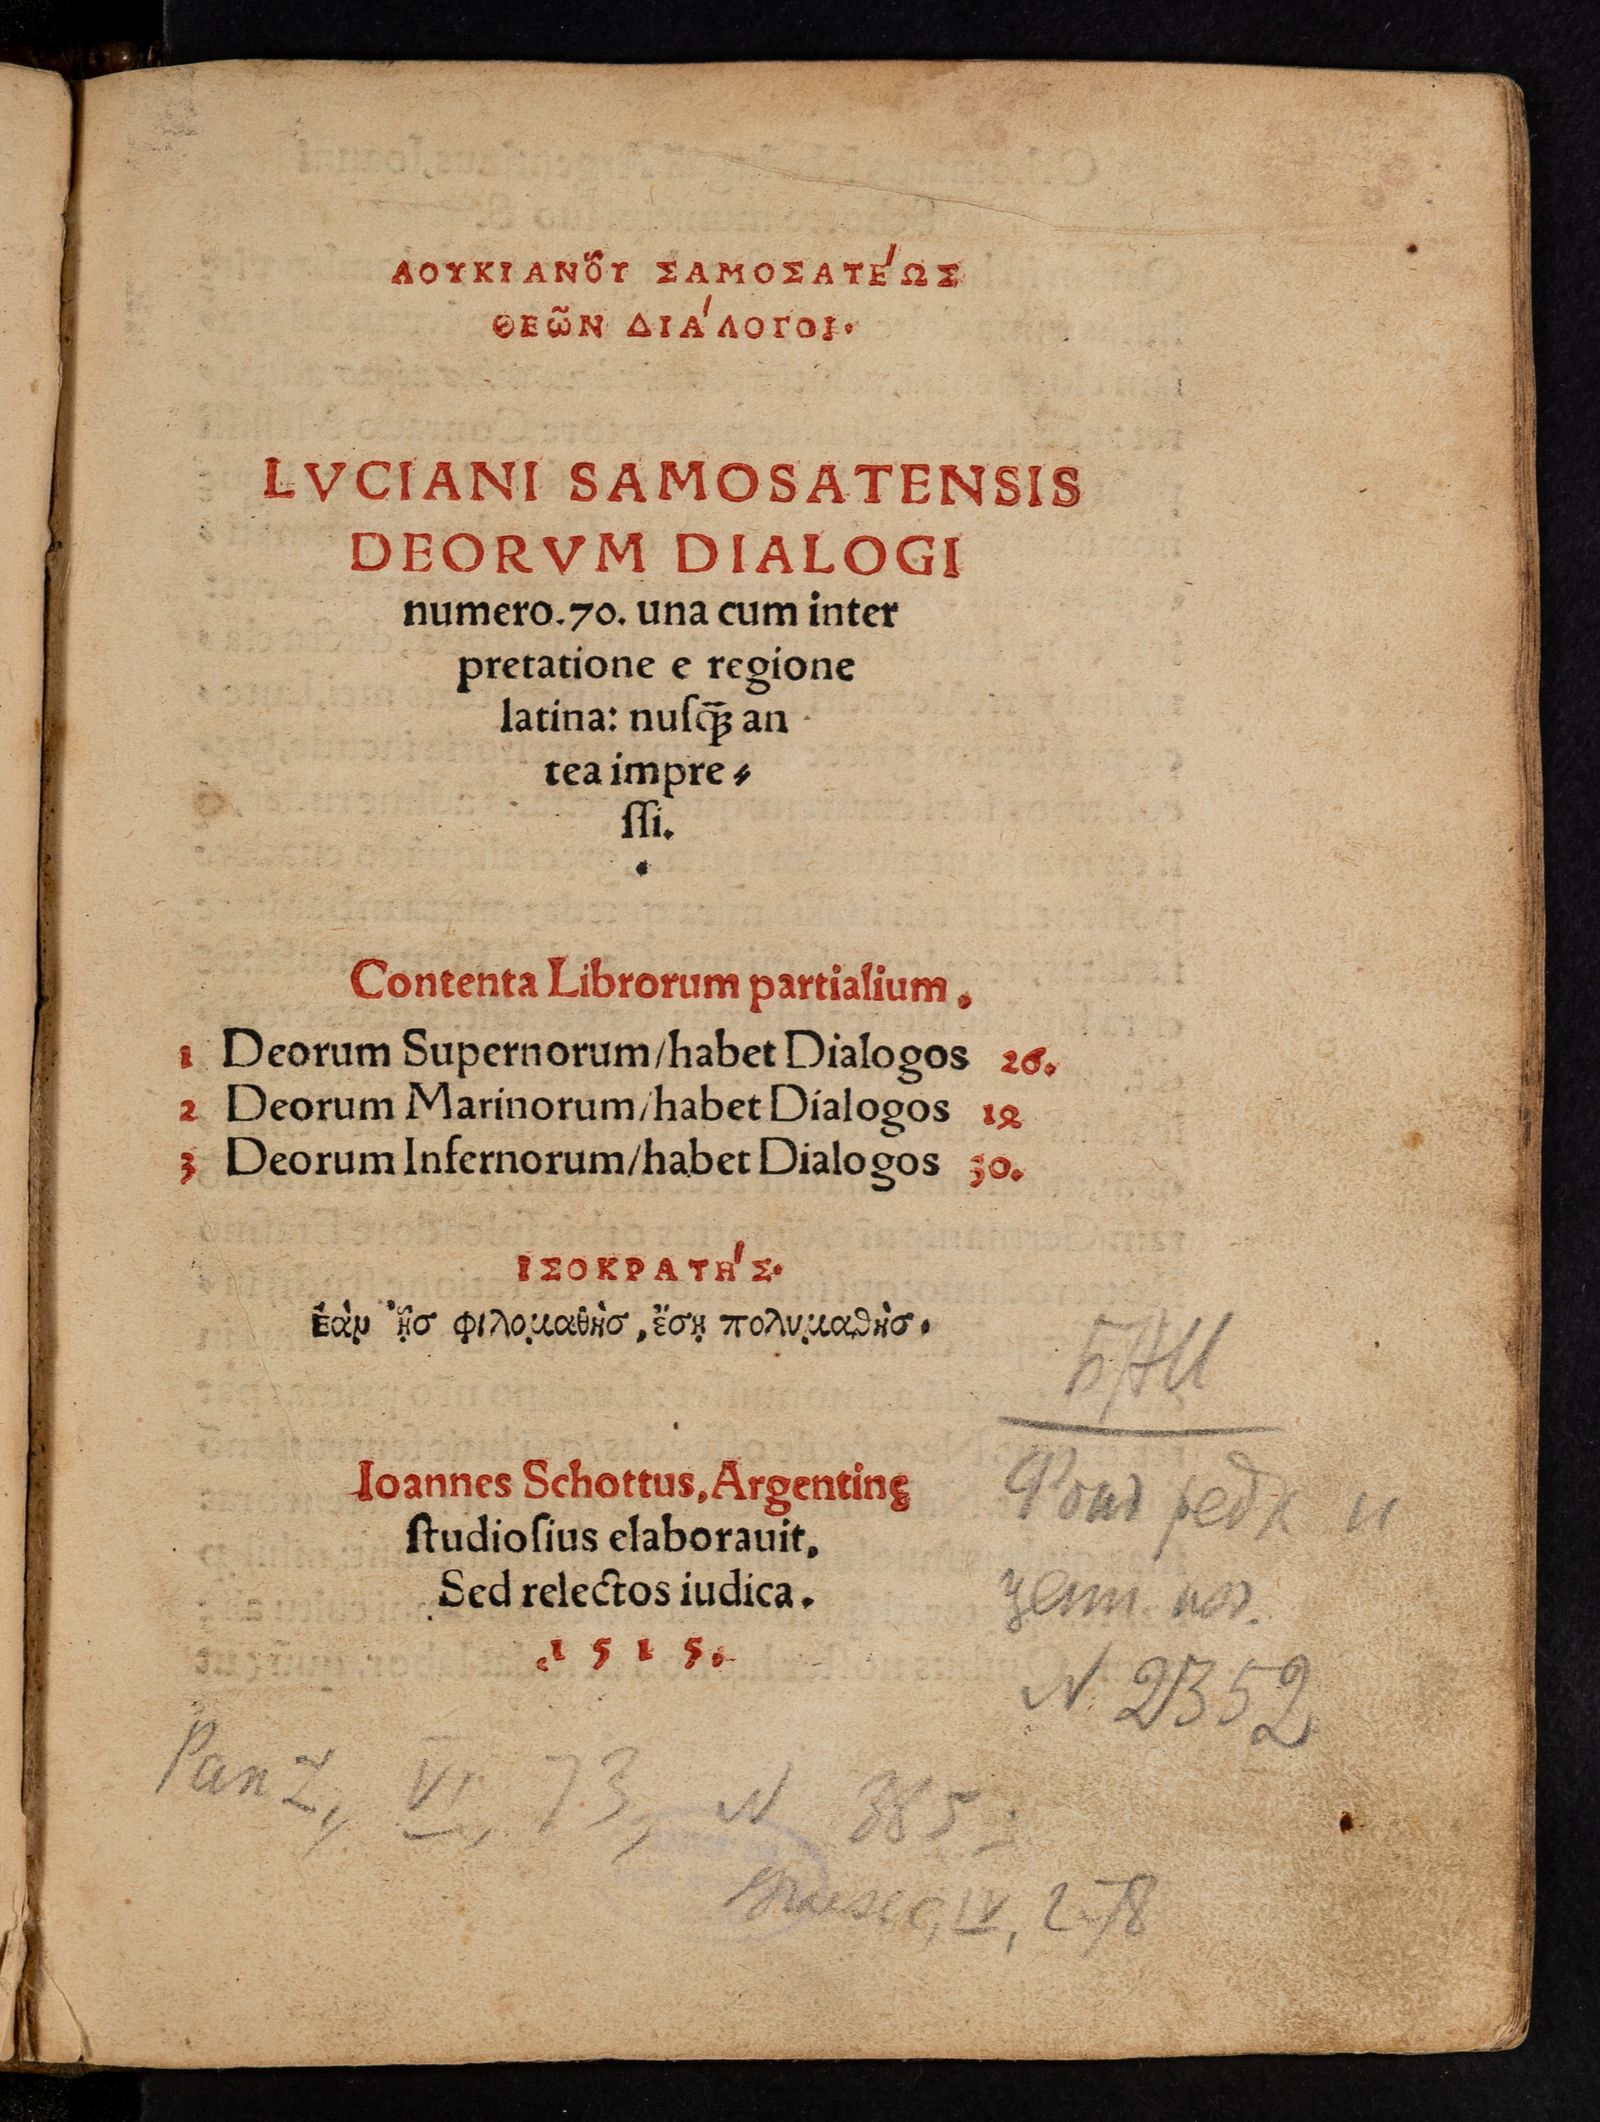 ΛΟΥΚΙΑΝΟ͂Υ ΣΑΜΟΣΑΤΈΩΣ
ΘΕΩ͂Ν ΔΙΆΛΟΓΟΙ.
LVCIANI SAMOSATENSIS
DEORVM DIALOGI
numero.70. una cum inter
pretatione e regione
latina: nuſꝗ̃ an
tea impre⸗
ſſi.
Contenta Librorum partialium.
1 Deorum Supernorum/habet Dialogos 26.
2 Deorum Marinorum/habet Dialogos 12
3 Deorum Infernorum/habet Dialogos 30.
ΙΣΟΚΡΑΤΉΣ.
Εὰν ᾖσ φιλομαθὴσ, ἔσῃ πολυμαθὴσ.
Ioannes Schottus, Argentinę
ſtudioſius elaborauit,
Sed relectos iudica.
.1515.
БАН
Фонд редк и
ценн
N. 2352
Panz, VI, 73, N 385
IV, 278